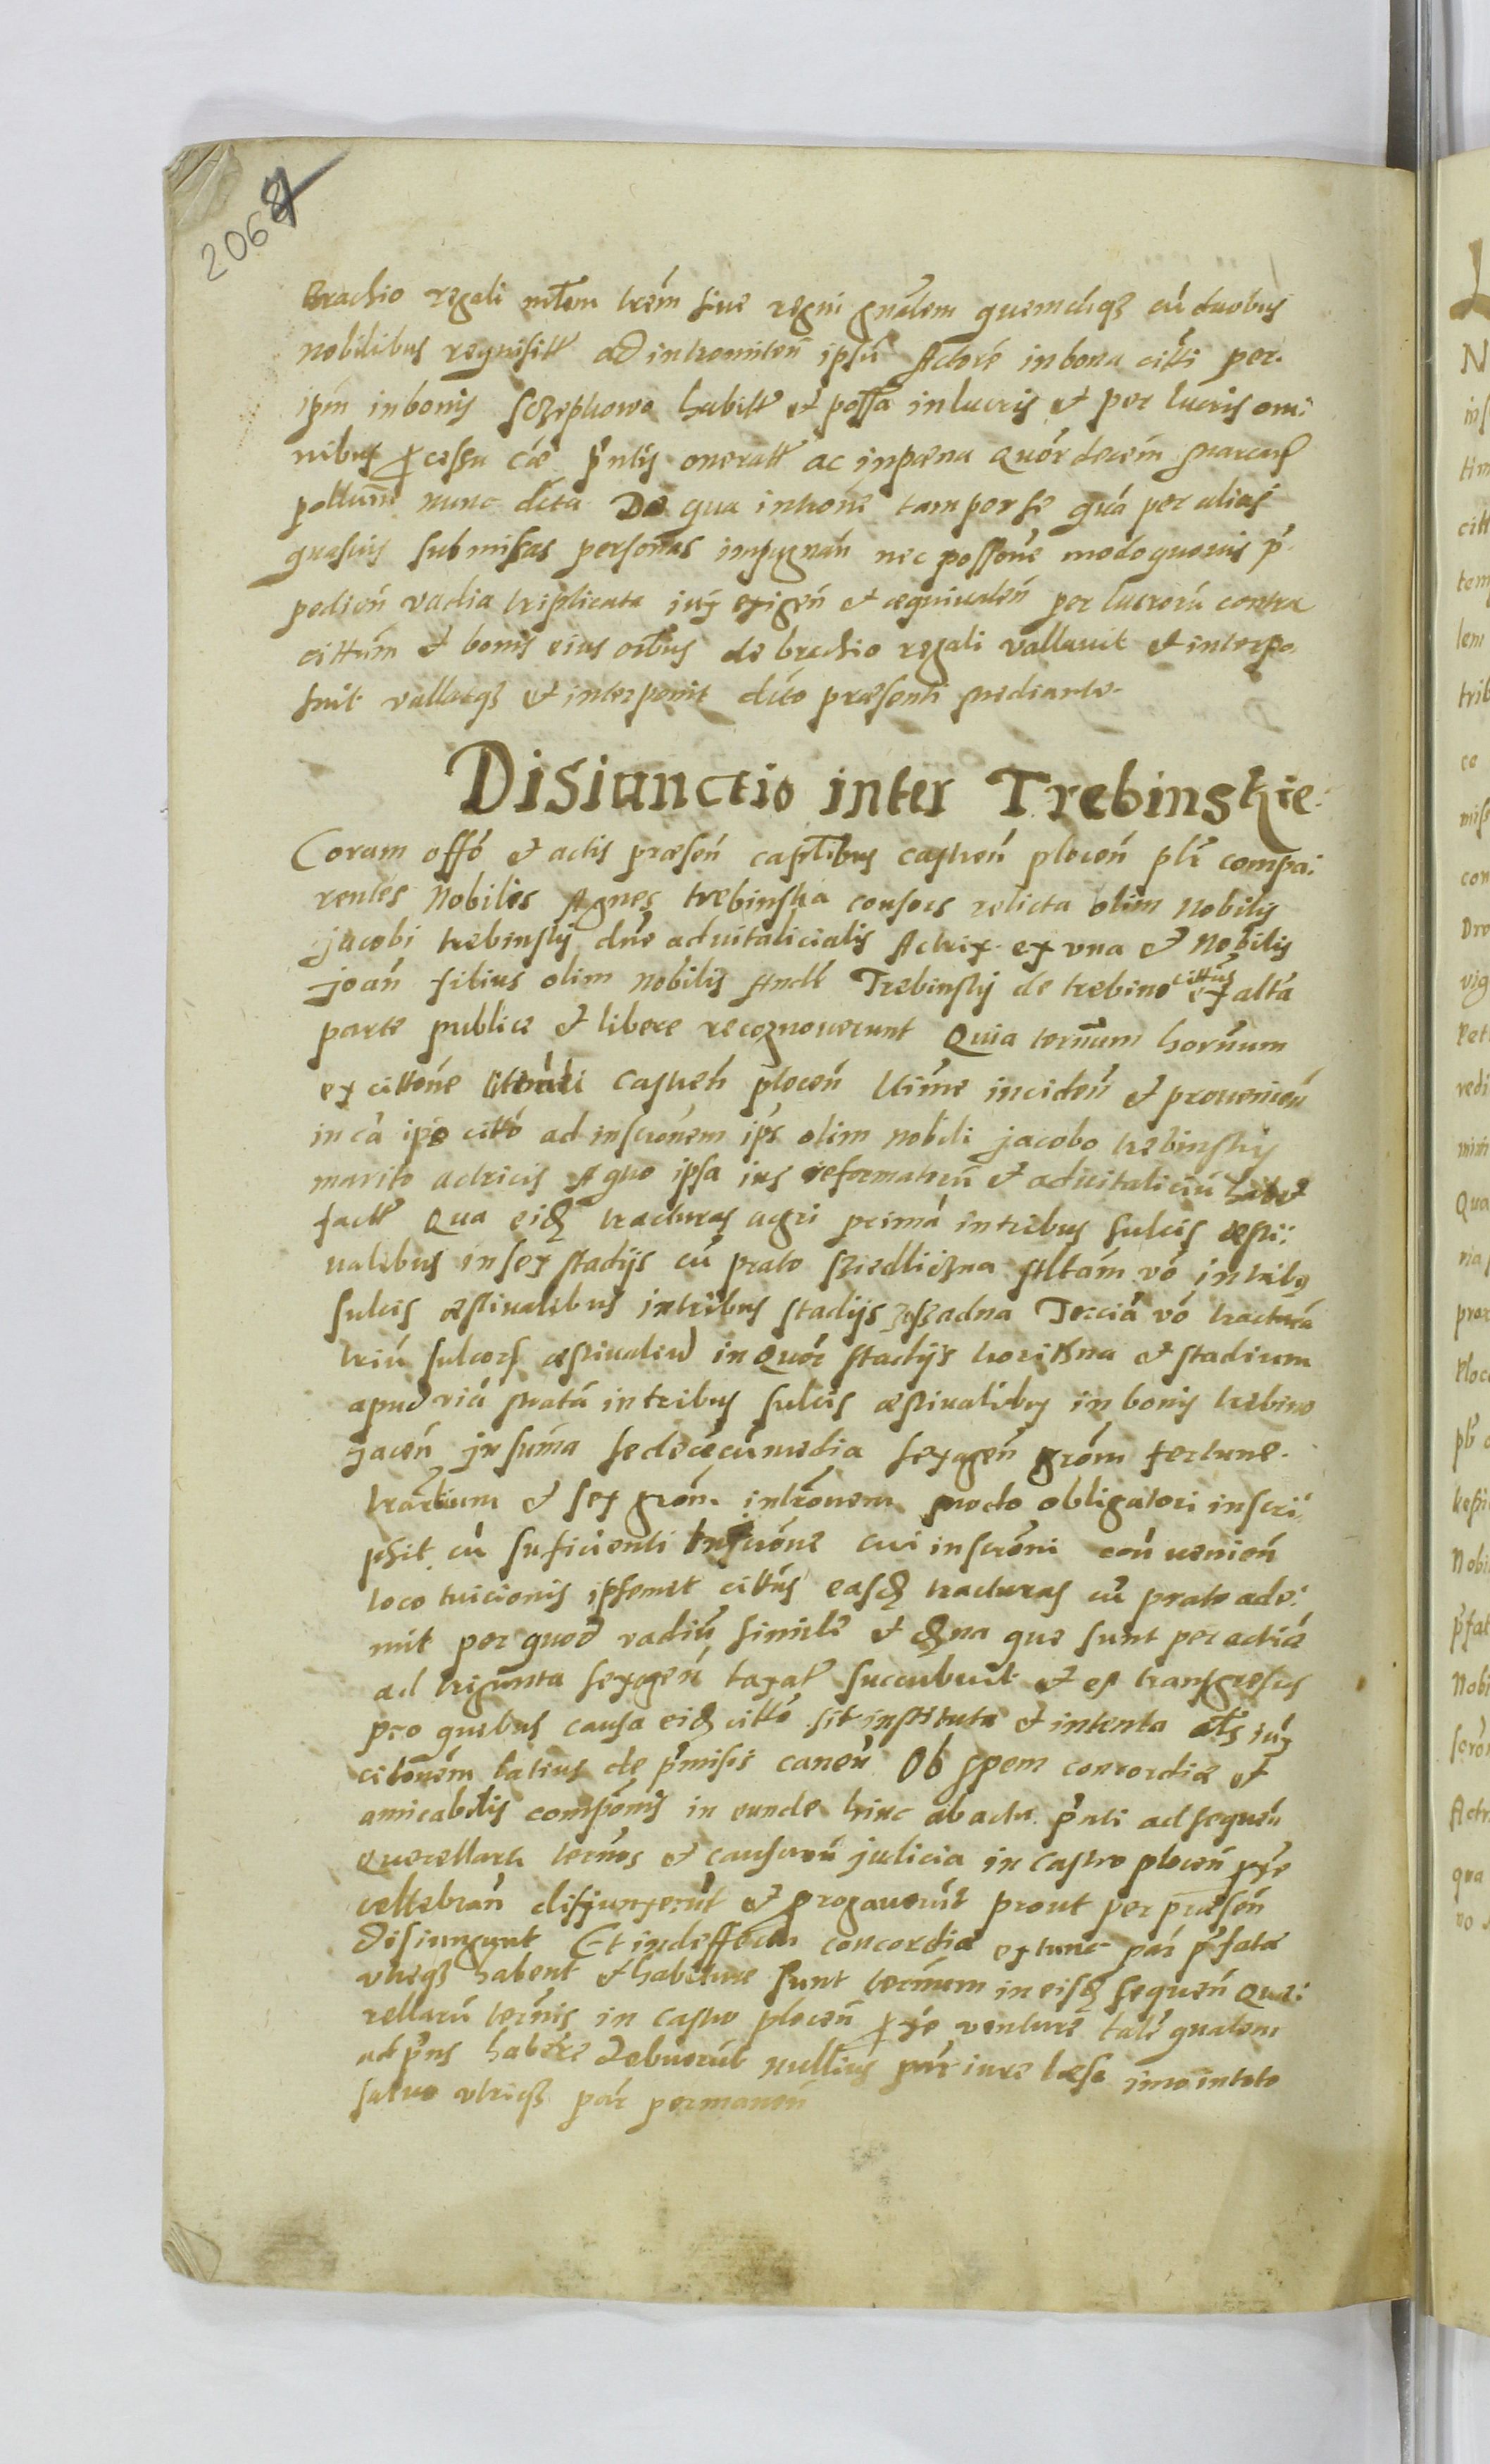 2068
Brachio regali mltem trem siue regni gnalem quemcliqz cu duobus
nobilibus requisitt ad intromiten ipsu Actore in bona citti per
ipm in bonis Sczephowo habitt et possa in lucris et per lucris om:
nibus pcessu cae pntis oneratt ac in paena quor decem marcar
pollum nunc dicta De qua introne tam per se qua per alias
quasuis submissas personas impugnan nec possone modo quouis p
pedien vadia triplicata iux exigen et aequiualen per lucroru contra
cittum et bonis eius oibus de brachio regali vallauit et interpo
suit vallatqz et interponit dicto praesenti mediante
Disiunctio inter Trebinskie
Coram offo et actis praesen captlibus castren plocen plr compa:
rentes Nobiles Agnes trebinska consors relicta olim Nobilis
jacobi trebinsky dne aduitalicialis Actrix ex vna et Nobilis
joan filius olim Nobilis Andr Trebinsky de trebino cittus ex alta
parte publice et libere recognouerunt Quia ternum hornum
ex cittone castren plocen ltime inciden et prouenien
in ca ipo citto ad inscronem ips olim nobili jacobo trebinsky
marito actricis A quo ipsa ius reformatorium et aduitaliciu habet
fact Qua eid tracturas agri prima in tribus sulcis aesti:
ualibus in sex stadijs cu prato sziedliczna Altam vo in tribus
sulcis aestiualibus in tribus stadijs zaszadna Tercia vo tractura
triu sulcor aestiualiu in quor stadijs et stadium
apud via strata in tribus sulcis aestiualibus in bonis trebino
jacen In suma sedece cu media sexagen grom
et sex grom. intronem modo obligatori inscri:
psit cu suficienti inscrone cui inscroni conuenien
loco tuicionis ipsemet cittus easd tracturas cu prato ade:
mit per quod vadiu simile et dna que sunt per actrice
ad triginta sexagen taxat succubuit et est transgressus
pro quibus causa eid citto sit instituta et intenta als iux
citonem latius de pmisis canen Ob spem concordiae et
amicabilis componis in eunde hinc ab actu pnti ad sequen
querellaru ternos et causaru judicia in castro plocen pxe
celtebran disjunxerut et progauerut prout per praesen
disiungunt Et in deffectu concordiae extunc par pfatae
vtreqz habent et habiture sunt terminum in eisd sequen que:
rellaru ternis in castro plocen pxe venture tale qualem
ad pns habere debuerut nullius par iure laeso imo in toto
saluo vtriqz par permanen